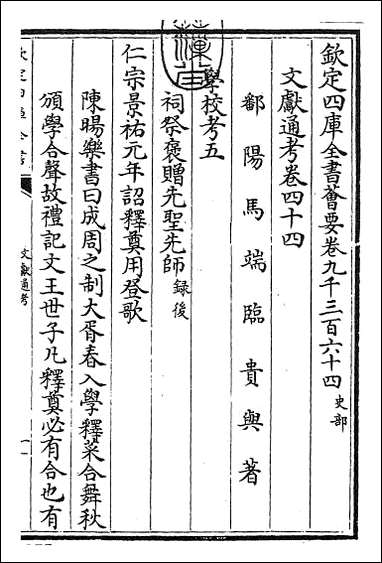 欽定四庫全書薈要卷九千三百六十四 史部
文獻通考卷四十四
鄱陽馬端臨貴與著
學校考五
祠祭褒贈先聖先師錄後
仁宗景祐元年詔釋奠用登歌
陳暘樂書曰成周之制大胥春入學釋菜合舞秋
頒學合聲故禮記文王世子凡釋奠必有合也有
文獻通考
一